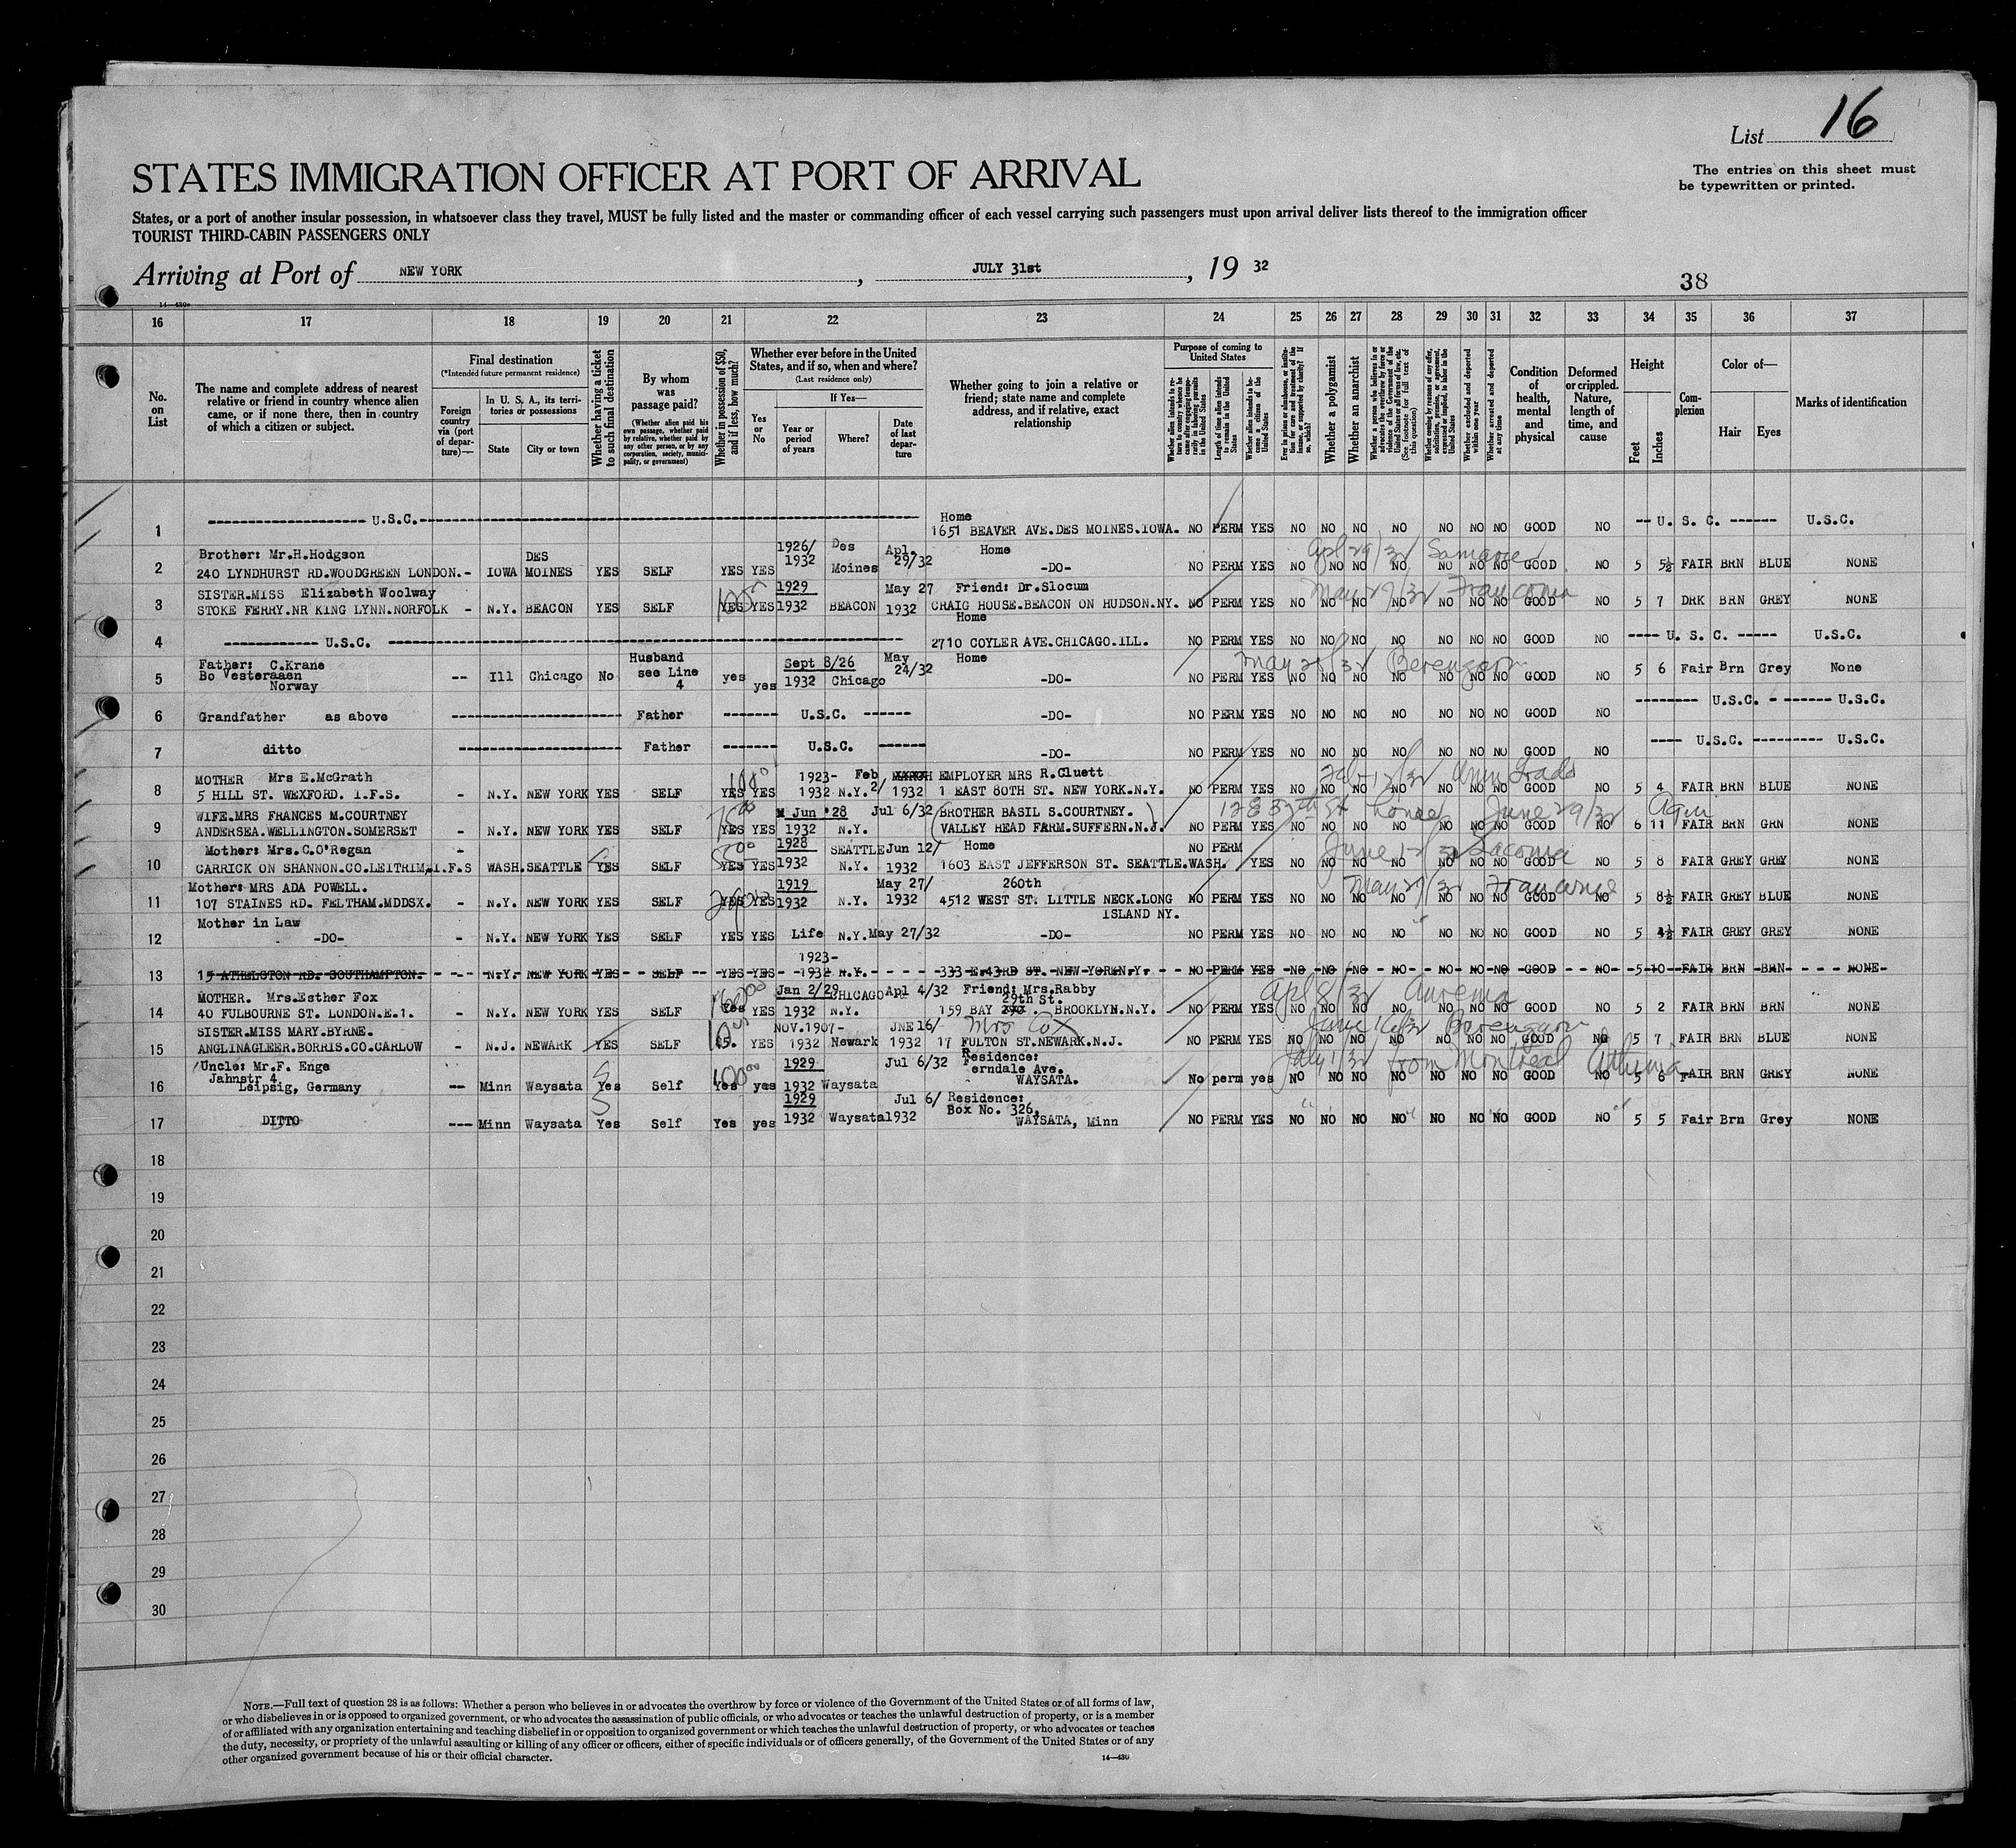 List 16
The entries on this sheet must
be typewritten or printed.
STATES IMMIGRATION OFFICER AT PORT OF ARRIVAL
States, or a port of another insular possession, in whatsoever class they travel, MUST be fully listed and the master or commanding officer of each vessel carrying such passengers must upon arrival deliver lists thereof to the immigration officer
TOURIST THIRD-CABIN PASSENGERS ONLY
Arriving at Port of NEW YORK , JULY 31st , 19 32
38
14—430
16 17 18 19 20 21 22 23 24 25 26 27 28 29 30 31 32 33 34 35 36 37
No. on List
The name and complete address of nearest relative or friend in country whence alien came, or if none there, then in country of which a citizen or subject.
Final destination
(*Intended future permanent residence)
Foreign country via (port of departure)—
In U. S. A., its territories or possessions
State
City or town
Whether having a ticket to such final destination
By whom was passage paid?
(Whether alien paid his own passage, whether paid by relative, whether paid by any other person, or by any corporation, society, municipality, or government)
Whether in possession of $50, and if less, how much?
Whether ever before in the United States, and if so, when and where?
(Last residence only)
Yes or No
If Yes—
Year or period of years
Where?
Date of last departure
Whether going to join a relative or friend; state name and complete address, and if relative, exact relationship
Purpose of coming to United States
Whether alien intends to return to country whence he came after engaging temporarily in laboring pursuits in the United States
Length of time alien intends to remain in the United States
Whether alien intends to become a citizen of the United States
Ever in prison or almshouse, or institution for care and treatment of the insane, or supported by charity? If so, which?
Whether a polygamist
Whether an anarchist
Whether a person who believes in or advocates the overthrow by force or violence of the Government of the United States or all forms of law, etc. (See footnote for full text of this question)
Whether coming by reason of any offer, solicitation, promise, or agreement, expressed or implied, to labor in the United States
Whether excluded and deported within one year
Whether arrested and deported at any time
Condition of health, mental and physical
Deformed or crippled. Nature, length of time, and cause
Height
Feet
Inches
Complexion
Color of—
Hair
Eyes
Marks of identification
1 U.S.C. Home
1651 BEAVER AVE.DES MOINES.IOWA. NO PERM YES NO NO NO NO NO NO NO GOOD NO -- U. S. C. ------ U.S.C.
Brother: Mr.H.Hodgson DES 1926/ Des Apl. Home Apl 29/32
2 240 LYNDHURST RD.WOODGREEN LONDON.- IOWA MOINES YES SELF YES YES 1932 Moines 29/32 -DO- NO PERM YES NO NO NO NO NO NO NO GOOD NO 5 5½ FAIR BRN BLUE NONE
SISTER.MISS Elizabeth Woolway 1929 May 27 Friend: Dr.Slocum May 27/32 Franconia
3 STOKE FERRY.NR KING LYNN.NORFOLK - N.Y. BEACON YES SELF YES YES 1932 BEACON 1932 CRAIG HOUSE.BEACON ON HUDSON.NY. NO PERM YES NO NO NO NO NO NO NO GOOD NO 5 7 DRK BRN GREY NONE
Home
4 U.S.C. 2710 COYLER AVE.CHICAGO.ILL. NO PERM YES NO NO NO NO NO NO NO GOOD NO ---- U. S. C. ----- U.S.C.
Father: C.Krane Husband Sept 8/26 May Home Berengaria
5 Bo Vesteraaen -- Ill Chicago No see Line yes yes 1932 Chicago 24/32 -DO- NO PERM YES NO NO NO NO NO NO NO GOOD NO 5 6 Fair Brn Grey None
Norway 4
6 Grandfather as above Father U.S.C. -DO- NO PERM YES NO NO NO NO NO NO NO GOOD NO U.S.C. U.S.C.
7 ditto Father U.S.C. -DO- NO PERM YES NO NO NO NO NO NO NO GOOD NO U.S.C. U.S.C.
MOTHER Mrs E.McGrath 100 1923- Feb MARCH EMPLOYER MRS R.Cluett
8 5 HILL ST. WEXFORD. I.F.S. - N.Y. NEW YORK YES SELF YES YES 1932 N.Y. 2/ 1932 1 EAST 80TH ST. NEW YORK.N.Y. NO PERM YES NO NO NO NO NO NO NO GOOD NO 5 4 FAIR BRN BLUE NONE
WIFE.MRS FRANCES M.COURTNEY M Jun '28 Jul 6/32 (BROTHER BASIL S.COURTNEY.) June 29/32
9 ANDERSEA.WELLINGTON.SOMERSET - N.Y. NEW YORK YES SELF YES YES 1932 N.Y. (VALLEY HEAD FARM.SUFFERN.N.J. NO PERM YES NO NO NO NO NO NO NO GOOD NO 6 11 FAIR BRN GRN NONE
Mother: Mrs.C.O'Regan 1928 SEATTLE Jun 12/ Home NO PERM
10 CARRICK ON SHANNON.CO.LEITRIM,I.F.S WASH.SEATTLE YES SELF YES YES 1932 N.Y. 1932 1603 EAST JEFFERSON ST. SEATTLE.WASH. YES NO NO NO NO NO NO NO GOOD NO 5 8 FAIR GREY GREY NONE
Mother: MRS ADA POWELL. 1919 May 27/ 260th May 27/32 Franconia
11 107 STAINES RD. FELTHAM.MDDSX. - N.Y. NEW YORK YES SELF YES YES 1932 N.Y. 1932 4512 WEST ST. LITTLE NECK.LONG NO PERM YES NO NO NO NO NO NO NO GOOD NO 5 8½ FAIR GREY BLUE NONE
ISLAND NY.
Mother in Law
12 -DO- - N.Y. NEW YORK YES SELF YES YES Life N.Y. May 27/32 -DO- NO PERM YES NO NO NO NO NO NO NO GOOD NO 5 4½ FAIR GREY GREY NONE
1923-
13 15 ATHELSTON RD. SOUTHAMPTON. N.Y. NEW YORK YES SELF YES YES 1932 N.Y. 333 E.43RD ST. NEW YORK N.Y. NO PERM YES NO NO NO NO NO NO NO GOOD NO 5 10 FAIR BRN BRN NONE
MOTHER. Mrs.Esther Fox Jan 2/29 CHICAGO Apl 4/32 Friend: Mrs.Rabby
29th St.
14 40 FULBOURNE ST. LONDON.E.1. - N.Y. NEW YORK YES SELF Yes YES 1932 N.Y. 159 BAY . BROOKLYN.N.Y. NO PERM YES NO NO NO NO NO NO NO GOOD NO 5 2 FAIR BRN BRN NONE
SISTER.MISS MARY.BYRNE. NOV.1907- JNE 16/ Mrs Cox June 16/32 Berengaria
15 ANGLINAGLEER.BORRIS.CO.CARLOW - N.J. NEWARK YES SELF YES 1932 Newark 1932 17 FULTON ST.NEWARK.N.J. NO PERM YES NO NO NO NO NO NO NO GOOD NO 5 7 FAIR BRN BLUE NONE
Uncle: Mr.F. Enge 1929 Jul 6/32 Residence: July 1/32 from Montreal Athenia
Jahnstr 4 erndale Ave.
16 Leipsig, Germany -- Minn Waysata Yes Self Yes yes 1932 Waysata WAYSATA. No perm yes NO NO NO NO NO NO NO GOOD NO 5 6 FAIR BRN GREY NONE
1929 Jul 6/ Residence:
Box No. 326,
17 DITTO --- Minn Waysata Yes Self Yes yes 1932 Waysata 1932 WAYSATA, Minn NO PERM YES NO NO NO NO NO NO NO GOOD NO 5 5 Fair Brn Grey NONE
18
19
20
21
22
23
24
25
26
27
28
29
30
NOTE.—Full text of question 28 is as follows: Whether a person who believes in or advocates the overthrow by force or violence of the Government of the United States or of all forms of law,
or who disbelieves in or is opposed to organized government, or who advocates the assassination of public officials, or who advocates or teaches the unlawful destruction of property, or is a member
of or affiliated with any organization entertaining and teaching disbelief in or opposition to organized government or which teaches the unlawful destruction of property, or who advocates or teaches
the duty, necessity, or propriety of the unlawful assaulting or killing of any officer or officers, either of specific individuals or of officers generally, of the Government of the United States or of any
other organized government because of his or their official character.
14—430